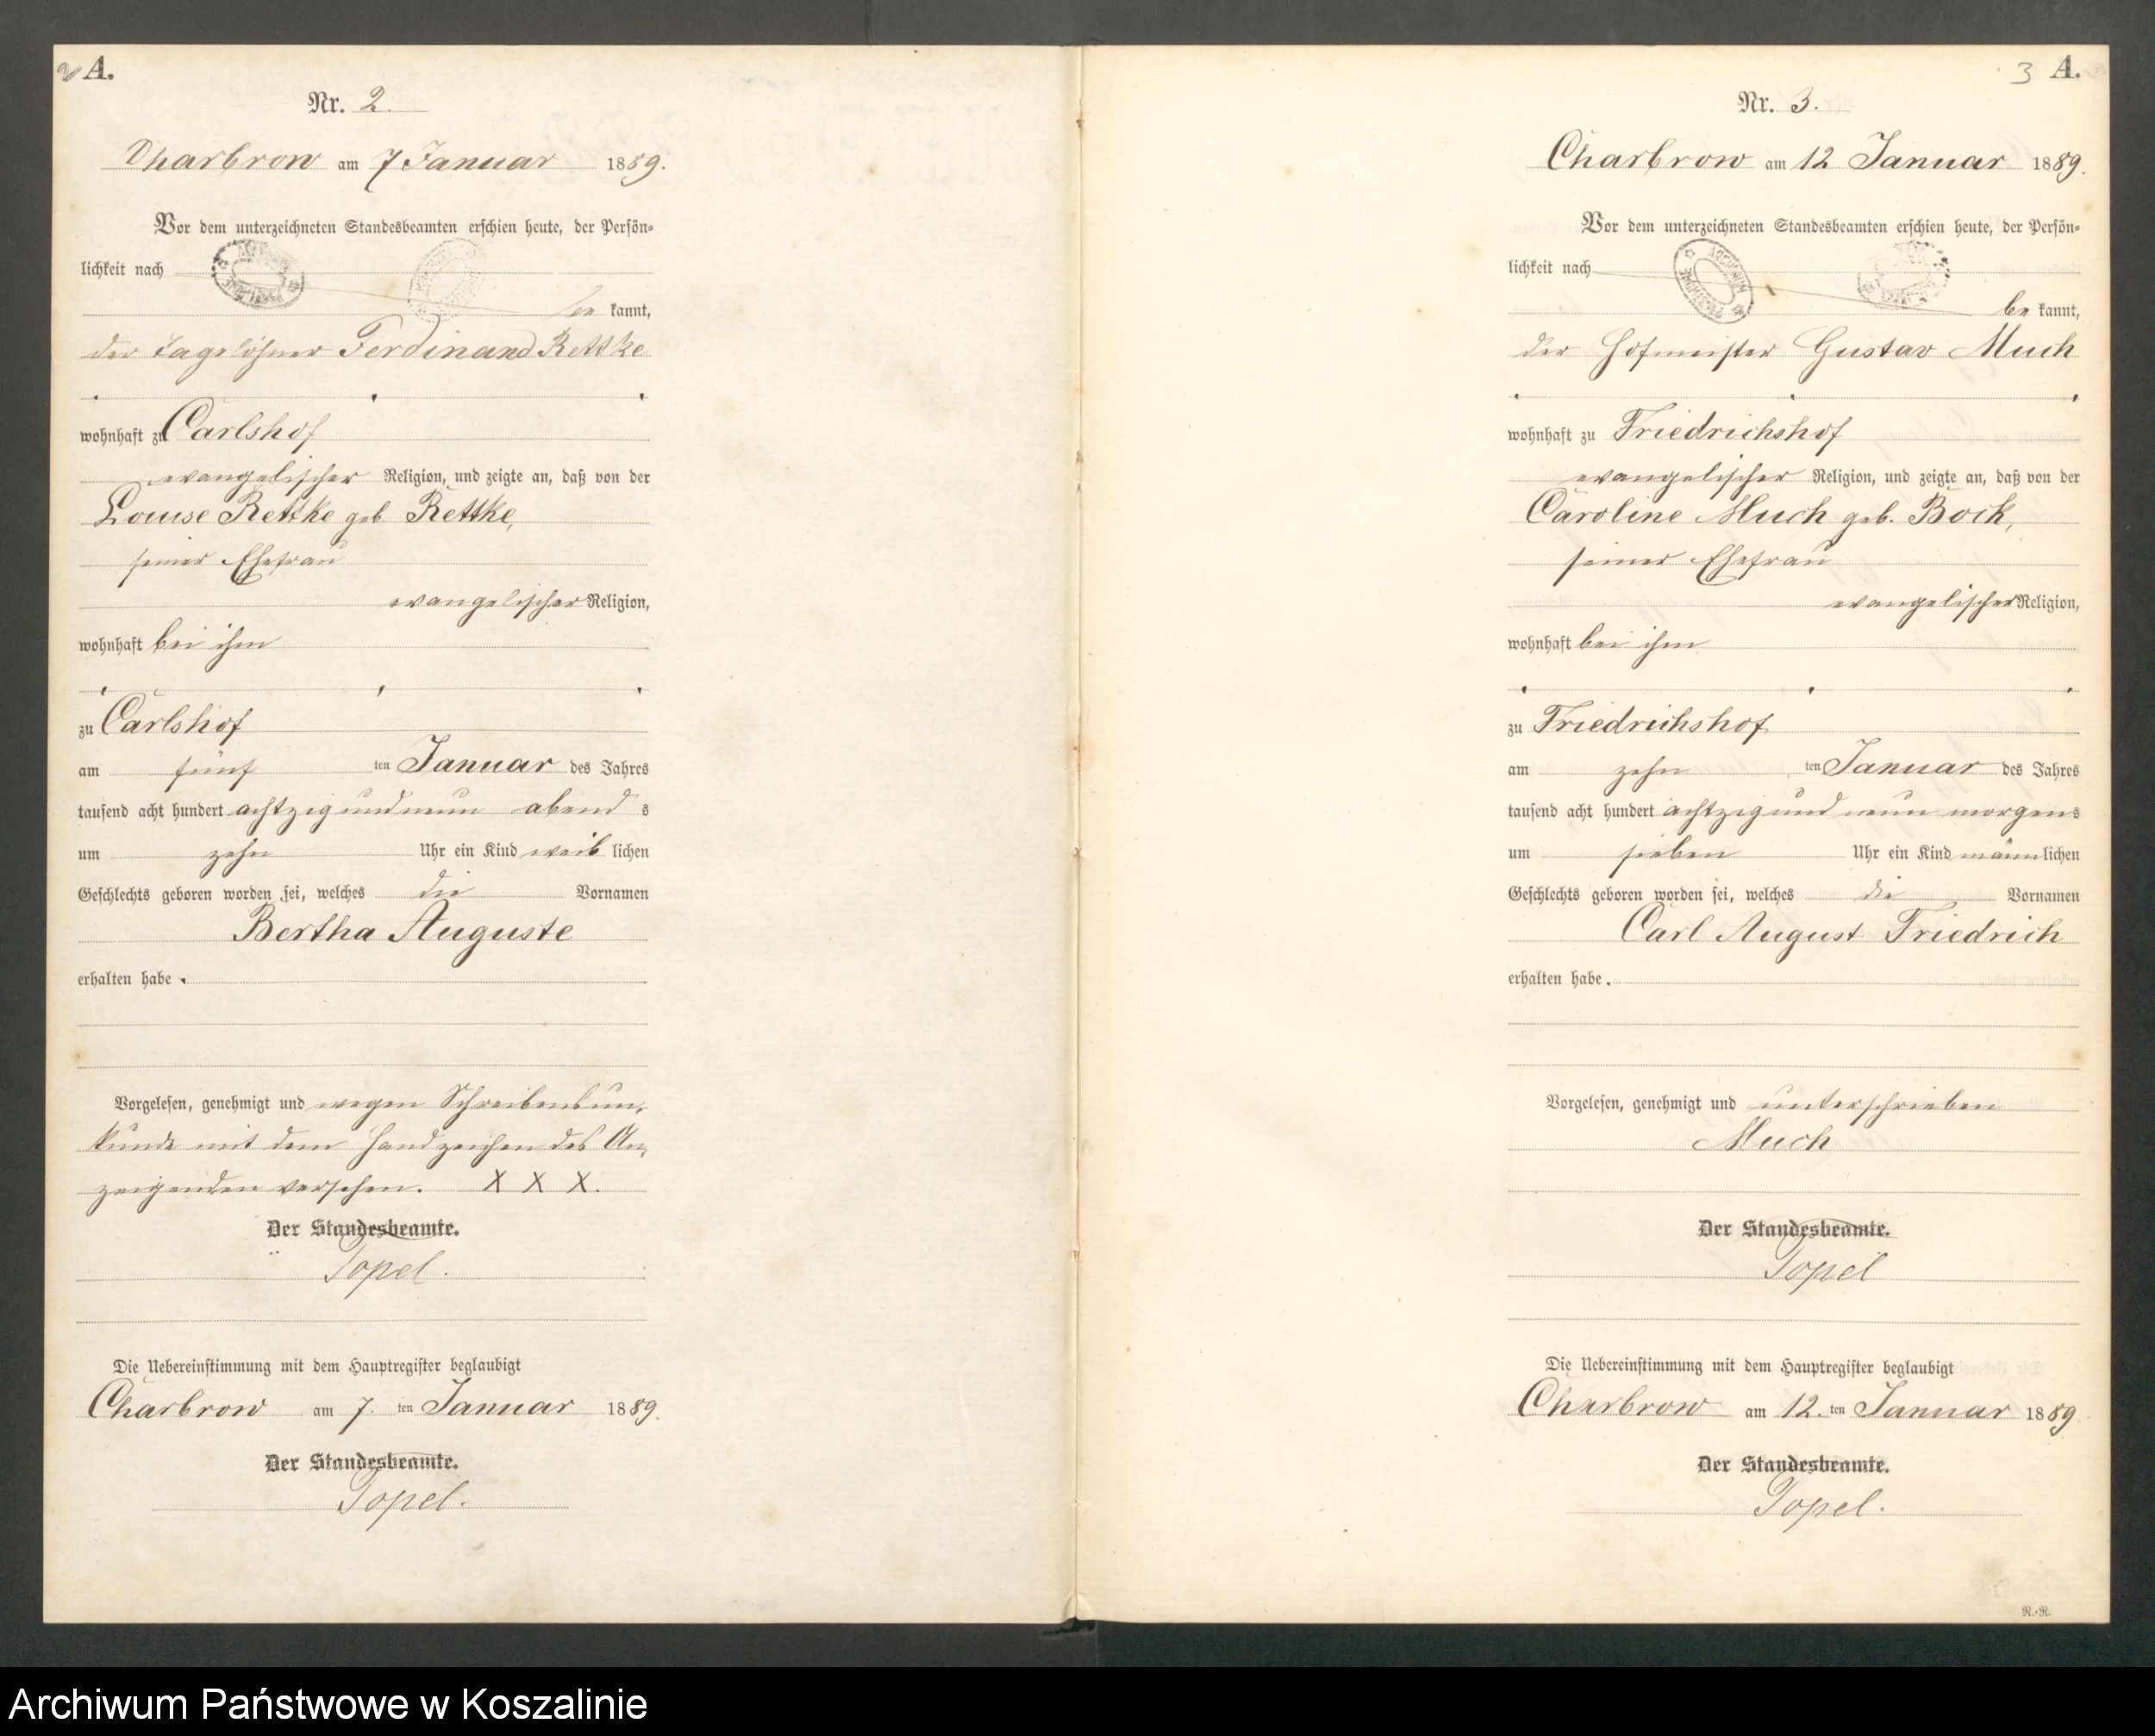 2 A.
Nr. 2.
Charbrow am 7 Januar 1889.
Vor dem unterzeichneten Standesbeamten erschien heute, der Persön-
lichkeit nach
be kannt,
der Tagelöhner Ferdinand Rettke
wohnhaft zu Carlshof
evangelischer Religion, und zeigte an, daß von der
Louise Rettke geb. Rettke,
seiner Ehefrau
evangelischer Religion,
wohnhaft bei ihm
zu Carlshof
am fünf ten Januar des Jahres
tausend acht hundert achtzig und neun abend s
um zehn Uhr ein Kind weib lichen
Geschlechts geboren worden sei, welches die Vornamen
Bertha Auguste
erhalten habe.
Vorgelesen, genehmigt und wegen Schreibensun-
kunde mit dem Handzeichen des An-
zeigenden versehen. X X X.
Der Standesbeamte.
Topel.
Die Uebereinstimmung mit dem Hauptregister beglaubigt
Charbrow am 7. ten Januar 1889.
Der Standesbeamte.
Topel.
3 A.
Nr. 3.
Charbrow am 12 Januar 1889.
Vor dem unterzeichneten Standesbeamten erschien heute, der Persön-
lichkeit nach
ARCHIWUM
be kannt,
der Hofmeister Gustav Much
wohnhaft zu Friedrichshof
evangelischer Religion, und zeigte an, daß von der
Caroline Much geb. Bock,
seiner Ehefrau
evangelischer Religion,
wohnhaft bei ihm
zu Friedrichshof
am zehn ten Januar des Jahres
tausend acht hundert achtzig und neun morgens
um sieben Uhr ein Kind männlichen
Geschlechts geboren worden sei, welches die Vornamen
Carl August Friedrich
erhalten habe.
Vorgelesen, genehmigt und unterschrieben
Much
Der Standesbeamte.
Topel
Die Uebereinstimmung mit dem Hauptregister beglaubigt
Charbrow am 12. ten Januar 1889
Der Standesbeamte.
Topel.
R.-R.
Archiwum Państwowe w Koszalinie